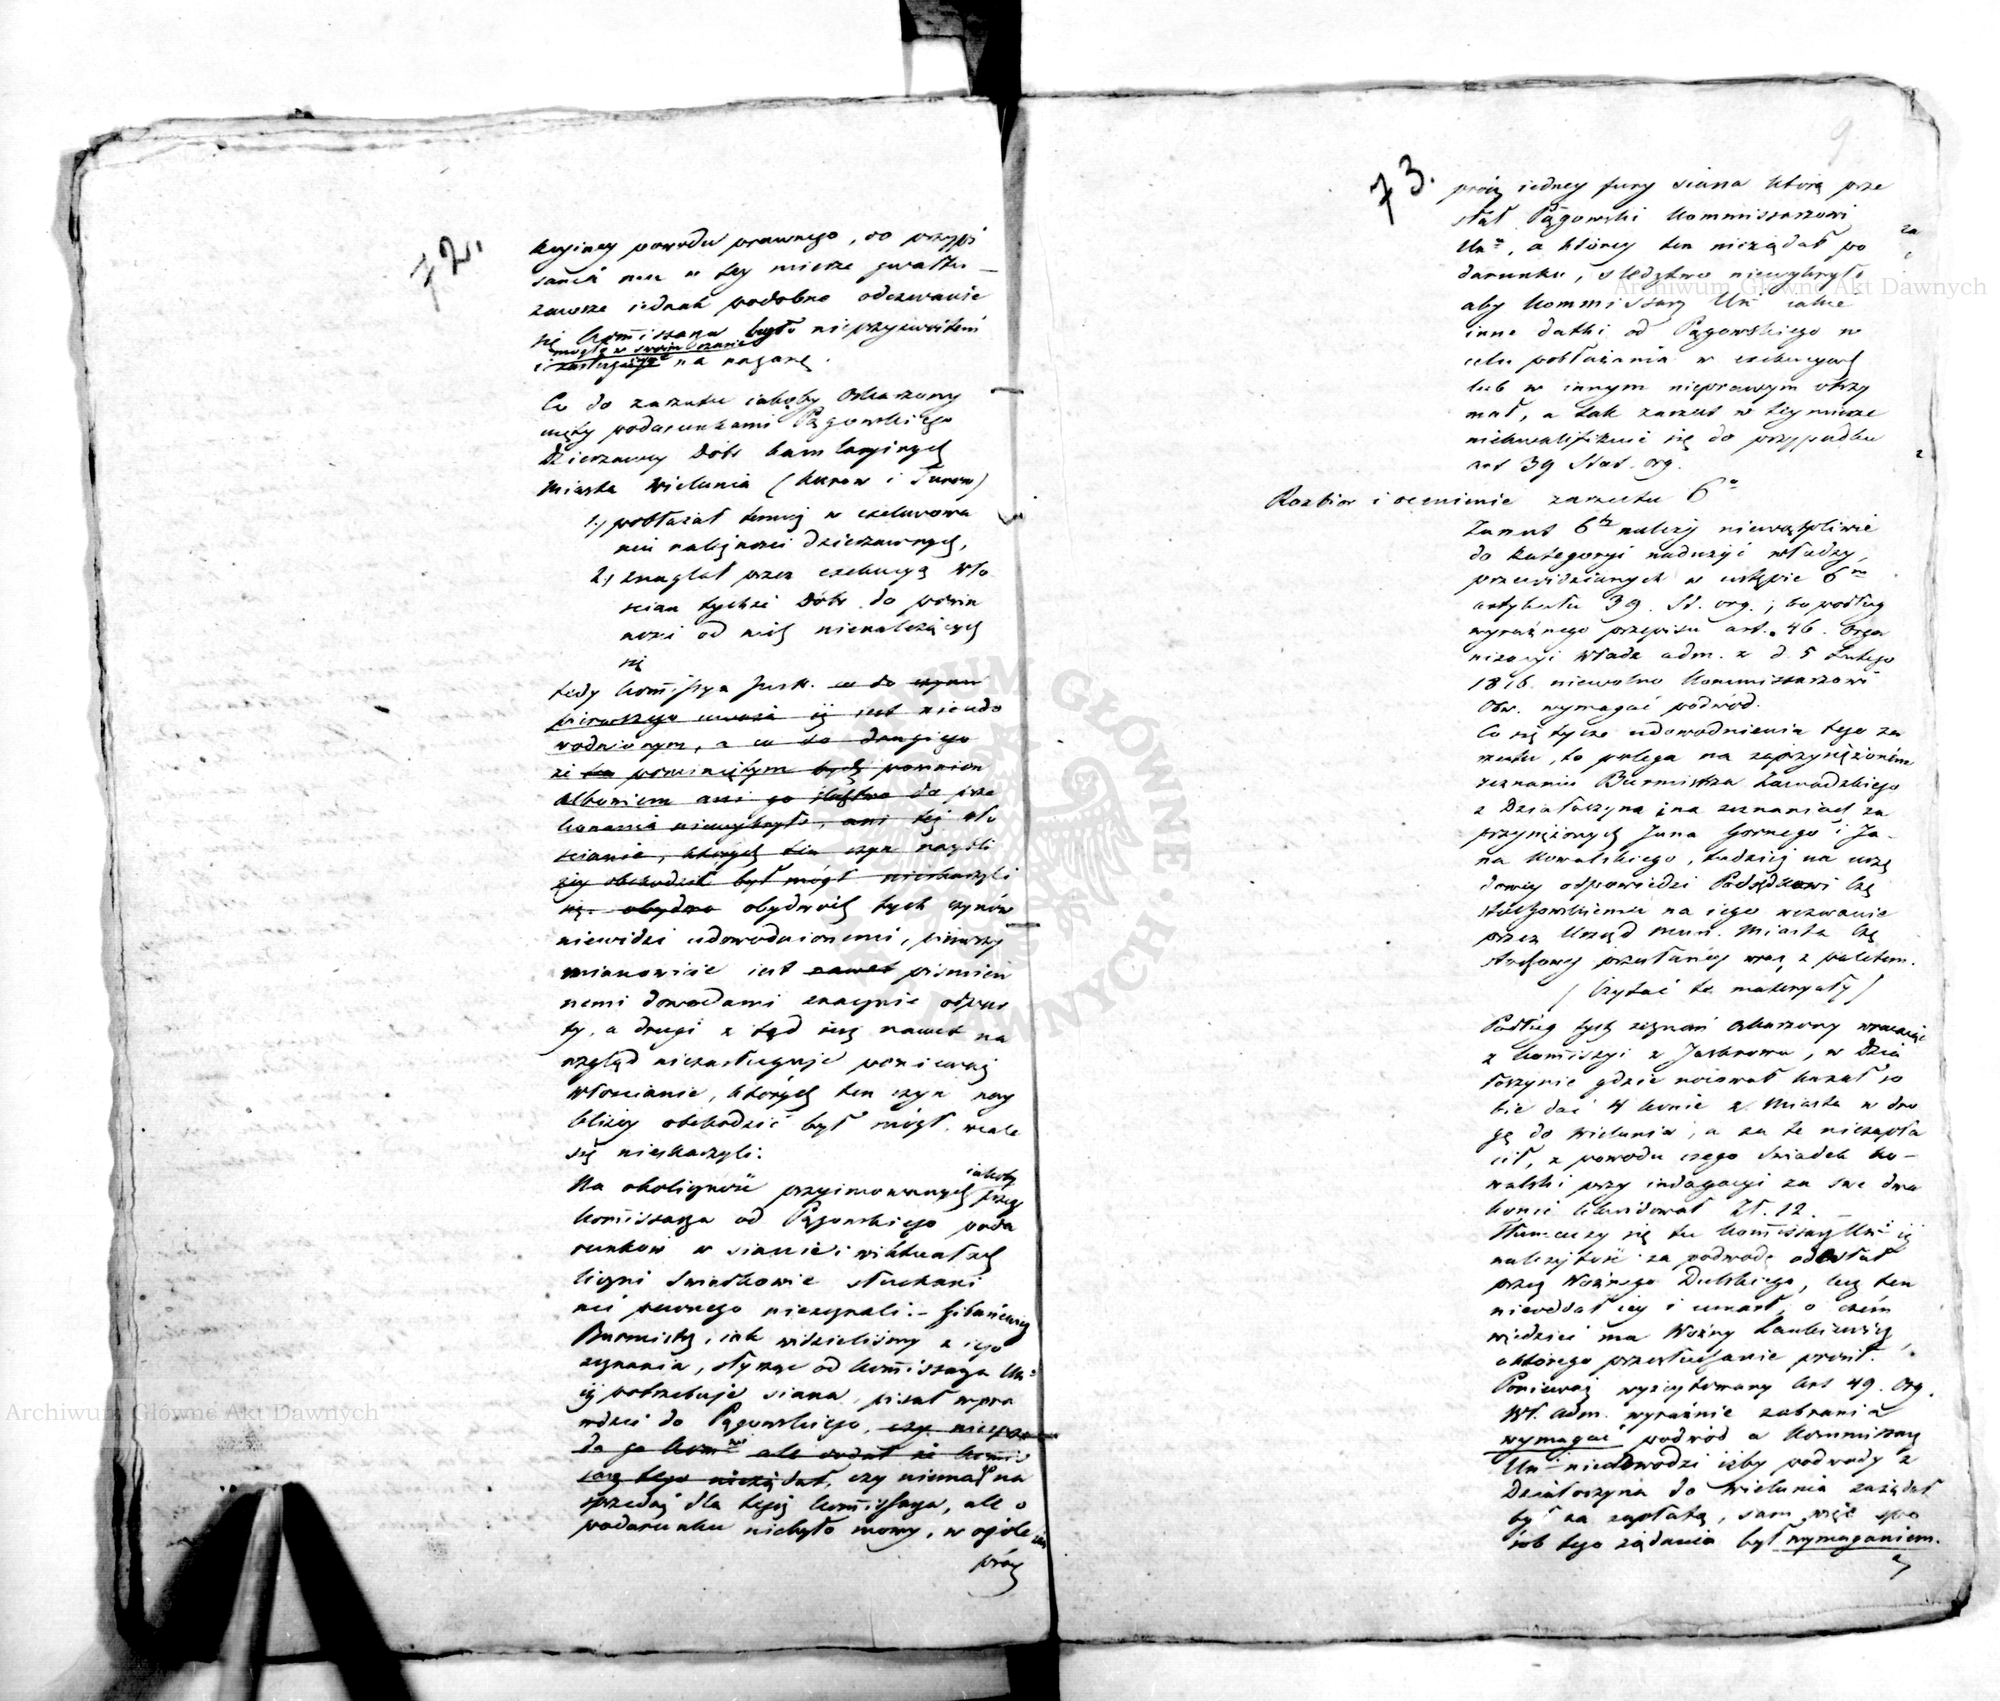 72.
powodu prawnego, do przypi
sania mu w tey mierze gwałtu –
zawsze iednak podobne odezwanie
się Kom̅issarza było nieprzyzwoitém
mogło w swoim czasie
i zasługuje na naganę.
Co do zarzutu iakoby Oskarżony
uięty podarunkami Pągowskiego
Dzierżawcy Dóbr kamlaryinych
Miasta Wielunia (Kurow i Turow)
1.) pobłażał temuż w exekwowa
niu należności dzierżawnych,
2.) znaglał przez exekucyą Wło
ścian tychże Dóbr do powin
ności od nich nienależących
się
tedy Kom̅issya Just. co do czynu
pierwszego uważa iż iest nieudo
wodnionym, a co do drugiego
że ten pominiętym bydź powinien
albowiem ani go śledztwo do prze
konania niewykryło, ani też wło
ścianie, których ten czyn nayśli
żey obchodzić był mógł nieskarżyli
się. obydwa obydwóch tych czynów
niewidzi udowodnionemi, pierwszy
mianowicie iest nawet pismien
nemi dowodami znacznie odpar
ty, a drugi z tąd iuż nawet na
wzgląd niezasługuje ponieważ
Włościanie, których ten czyn nay
bliżey obchodzić był mógł, wcale
się nieskarzyli.
Na okoliczność przyimowanych iakoby przez
Kom̅issarza od Pągowskiego poda
runków w sianie i wiktuałach
liczni świadkowie słuchani
nic pewnego niezeznali. –
Burmistrz, iak widzieliśmy z iego
zeznania, słysząc od Kom̅issarza Un̅
iż potrzebuje siana, pisał wpra
wdzie do Pągowskiego, czy
ale dodał że Kom̅is
sarz tego nieżądał, czy niema na
sprzedaż dla tegoż Kom̅issarza, ale o
podarunku niebyło mowy, w ogóle
prócz
9
73.
prócz iedney fury siana którą prze
słał Pągowski Kommissarzowi
Un̅, a którey ten nieżądał po
darunku, śledztwo niewykryło
aby Kommissarz Un̅ iakie
inne datki od Pągowskiego w
celu pobłażania w exekucyach
lub w innym nieprawym otrzy
mał, a tak zarzut w tey mierze
niekwalifikuie się do przypadku
art 39 Stat. org.
Rozbior i ocenienie zarzutu 6°
Zarzut 6ty należy niewątpliwie
do kategoryi nadużyć władzy,
przewidzianych w ustępie 6m
artykułu 39. St. org.; bo podług
wyraźnego przepisu art. 46. Orga
nizacyi Władz adm. z d. 5 Lutego
1816. niewolno Kommissarzowi
Obw. wymagać podwód.
Co się tycze udowodnienia tego za
rzutu, to polega na zaprzysiężoném
zeznaniu Burmistrza Zawadzkiego
z Działoszyna i na zeznaniach za
przysiężonych Jana Gornego i Ja-
na Kowalskiego, tudzież na urzę
dowey odpowiedzi Podsędkowi Czę
stochowskiemu na iego wezwanie
przez Urząd Mun. Miasta Czę
stochowy przesłaney wraz z paletem.
/ Czytać te materyały /
Podług tych zeznań oskarżony wracaiąc
z Kom̅issyi z Jaworowa, w Dzia
łoszynie gdzie nocował kazał so
bie dać 4 konie z Miasta w dro
gę do Wielunia, a za te niezapła
cił, z powodu czego świadek Ko-
walski przy indagacyi za swe dwa
konie likwidował Zł. 12.
Tłumaczy się tu Kom̅issarz Un̅ iż
należytość za podwodę odesłał
przez Woźnego Dulskiego, lecz ten
nieoddał iey i umarł, o czém
wiedzieć ma Woźny
o którego przesłuchanie prosił.
Ponieważ wyżcytowany Art 49. Org.
Wł. adm. wyraźnie zabrania
wymagać podwód a Kommissarz
Un̅ niedowodzi iżby podwody z
Działoszyna do Wielunia zażądał
był za zapłatą, sam więc spo
sób tego żądania był wymaganiem.
Archiwum Główne Akt Dawnych
Archiwum Główne Akt Dawnych